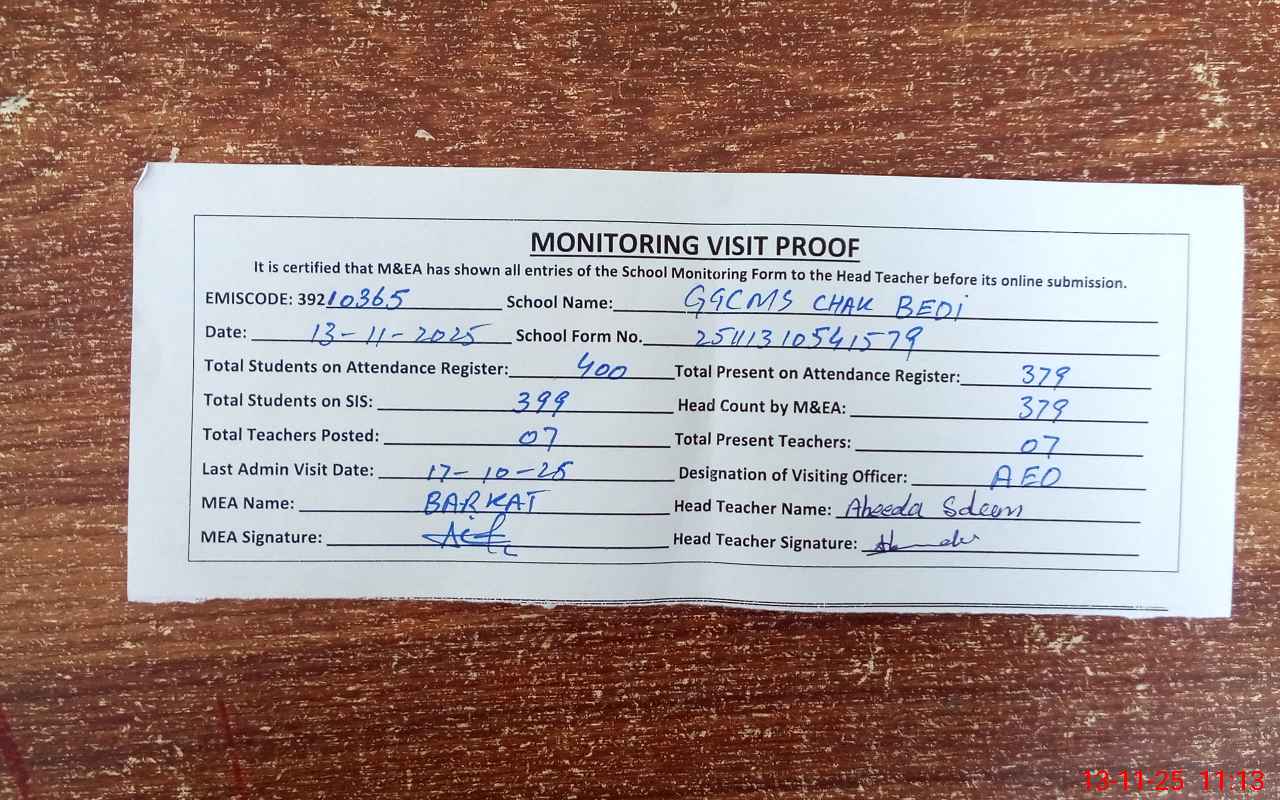 MONITORING VISIT PROOF
It is certified that M&EA has shown all entries of the School Monitoring Form to the Head Teacher before its online submission.
EMISCODE: 39210365 School Name: GGCMS CHAK BEDI
Date: 13-11-2025 School Form No. 2511310541579
Total Students on Attendance Register: 400 Total Present on Attendance Register: 379
Total Students on SIS: 399 Head Count by M&EA: 379
Total Teachers Posted: 07 Total Present Teachers: 07
Last Admin Visit Date: 17-10-25 Designation of Visiting Officer: AEO
MEA Name: BARKAT Head Teacher Name: Abeeda
MEA Signature: Head Teacher Signature:
13-11-25 11:13